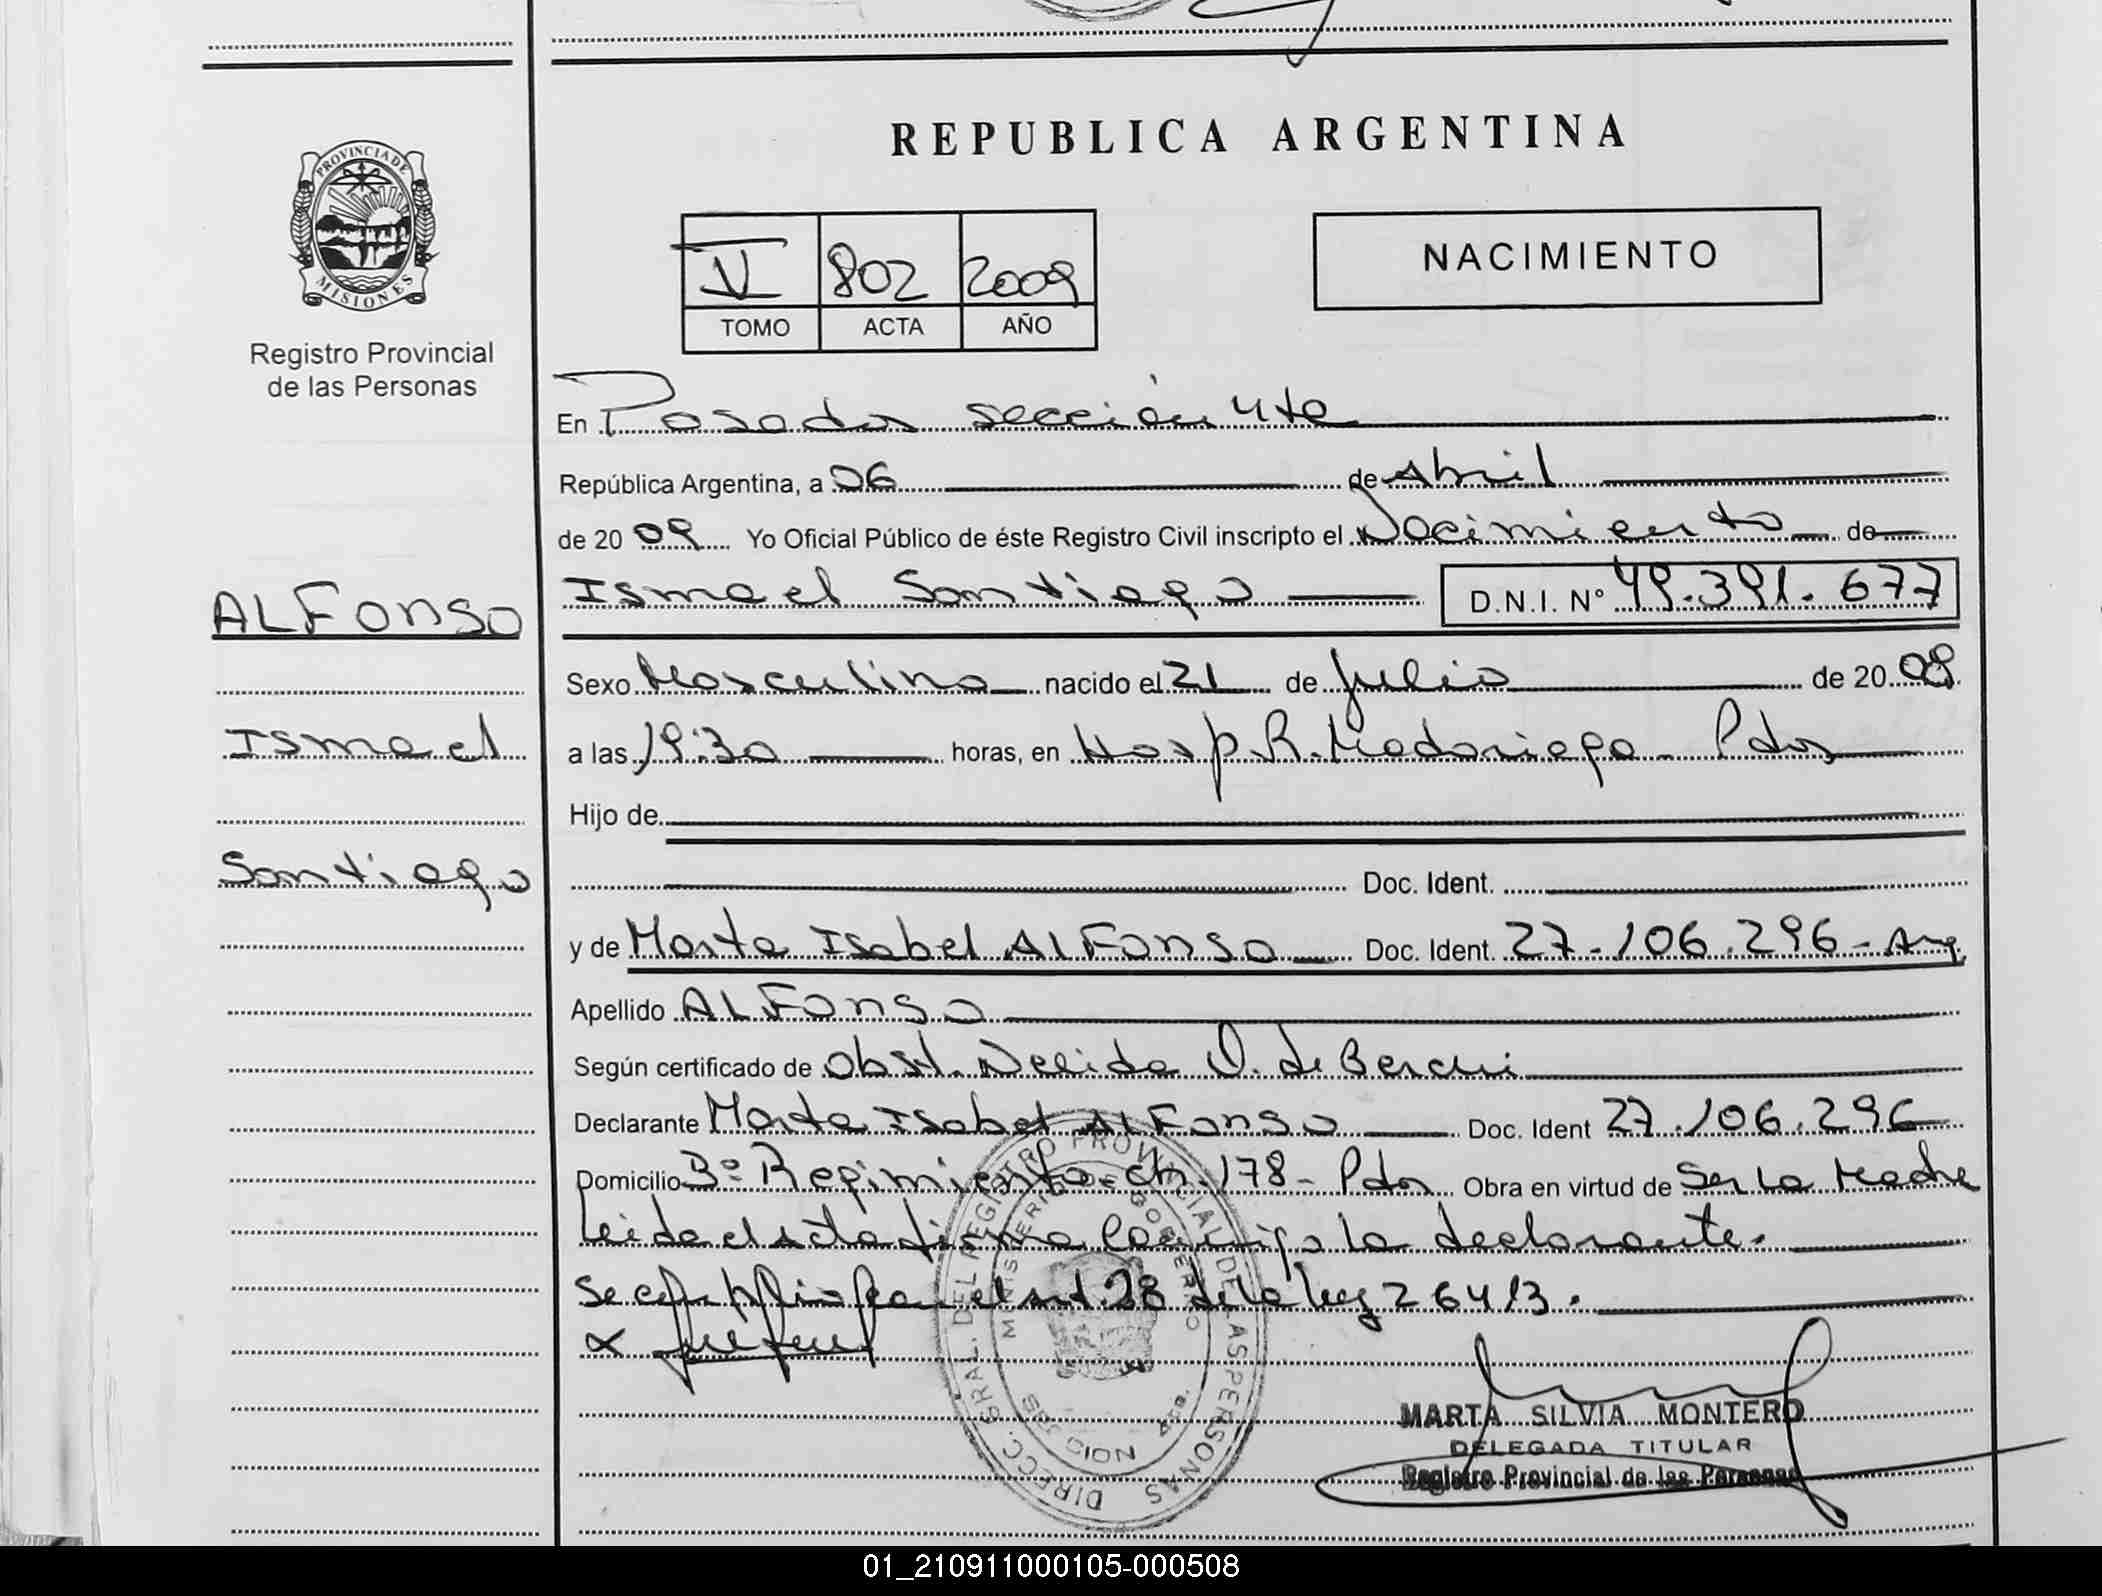 PROVINCIA DE
MISIONES
Registro Provincial
de las Personas
ALFonso
Ismael
Santiago
REPUBLICA ARGENTINA
V 802 2009
TOMO ACTA AÑO
NACIMIENTO
En Posadas sección 4ta
República Argentina, a 06 de Abril
de 2009 Yo Oficial Público de éste Registro Civil inscripto el Nacimiento de
Ismael Santiago D.N.I. N° 49.391.677
Sexo Masculino nacido el 21 de Julio de 2008
a las 19:30 horas, en Hosp. R. Madariaga - Pdas
Hijo de
Doc. Ident.
y de Marta Isabel ALFonso Doc. Ident. 27.106.296 - Arg.
Apellido ALFonso
Según certificado de Obst. Nelida V. de
Declarante Marta Isabel ALFonso Doc. Ident 27.106.296
Domicilio 3º Regimiento ch. 178 - Pdas Obra en virtud de Ser La Madre
Leida el acta firma conmigo la declarante.
el art. 28 de la ley 26413.
DIRECC. GRAL. DEL REGISTRO PROVINCIAL DE LAS PERSONAS
MINISTERIO DE GOBIERNO
MARTA SILVIA MONTERO
DELEGADA TITULAR
Registro Provincial de las Personas
01_210911000105-000508